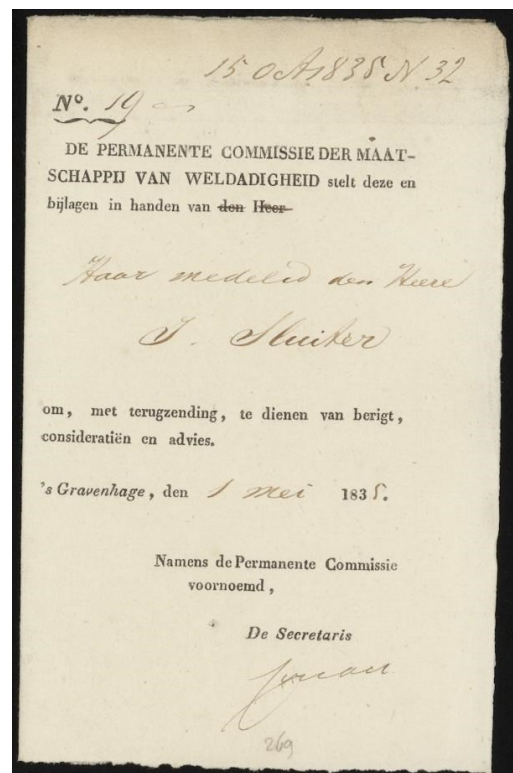 15 Oct 1835 N 32
Nº. 19
DE PERMANENTE COMMISSIE DER MAAT-
SCHAPPIJ VAN WELDADIGHEID stelt deze en
bijlagen in handen van den Heer
Haar medelid den Heere
J. Sluiter
om, met terugzending, te dienen van berigt,
consideratiën en advies.
's Gravenhage, den 1 mei 1835.
Namens de Permanente Commissie
voornoemd,
De Secretaris
269